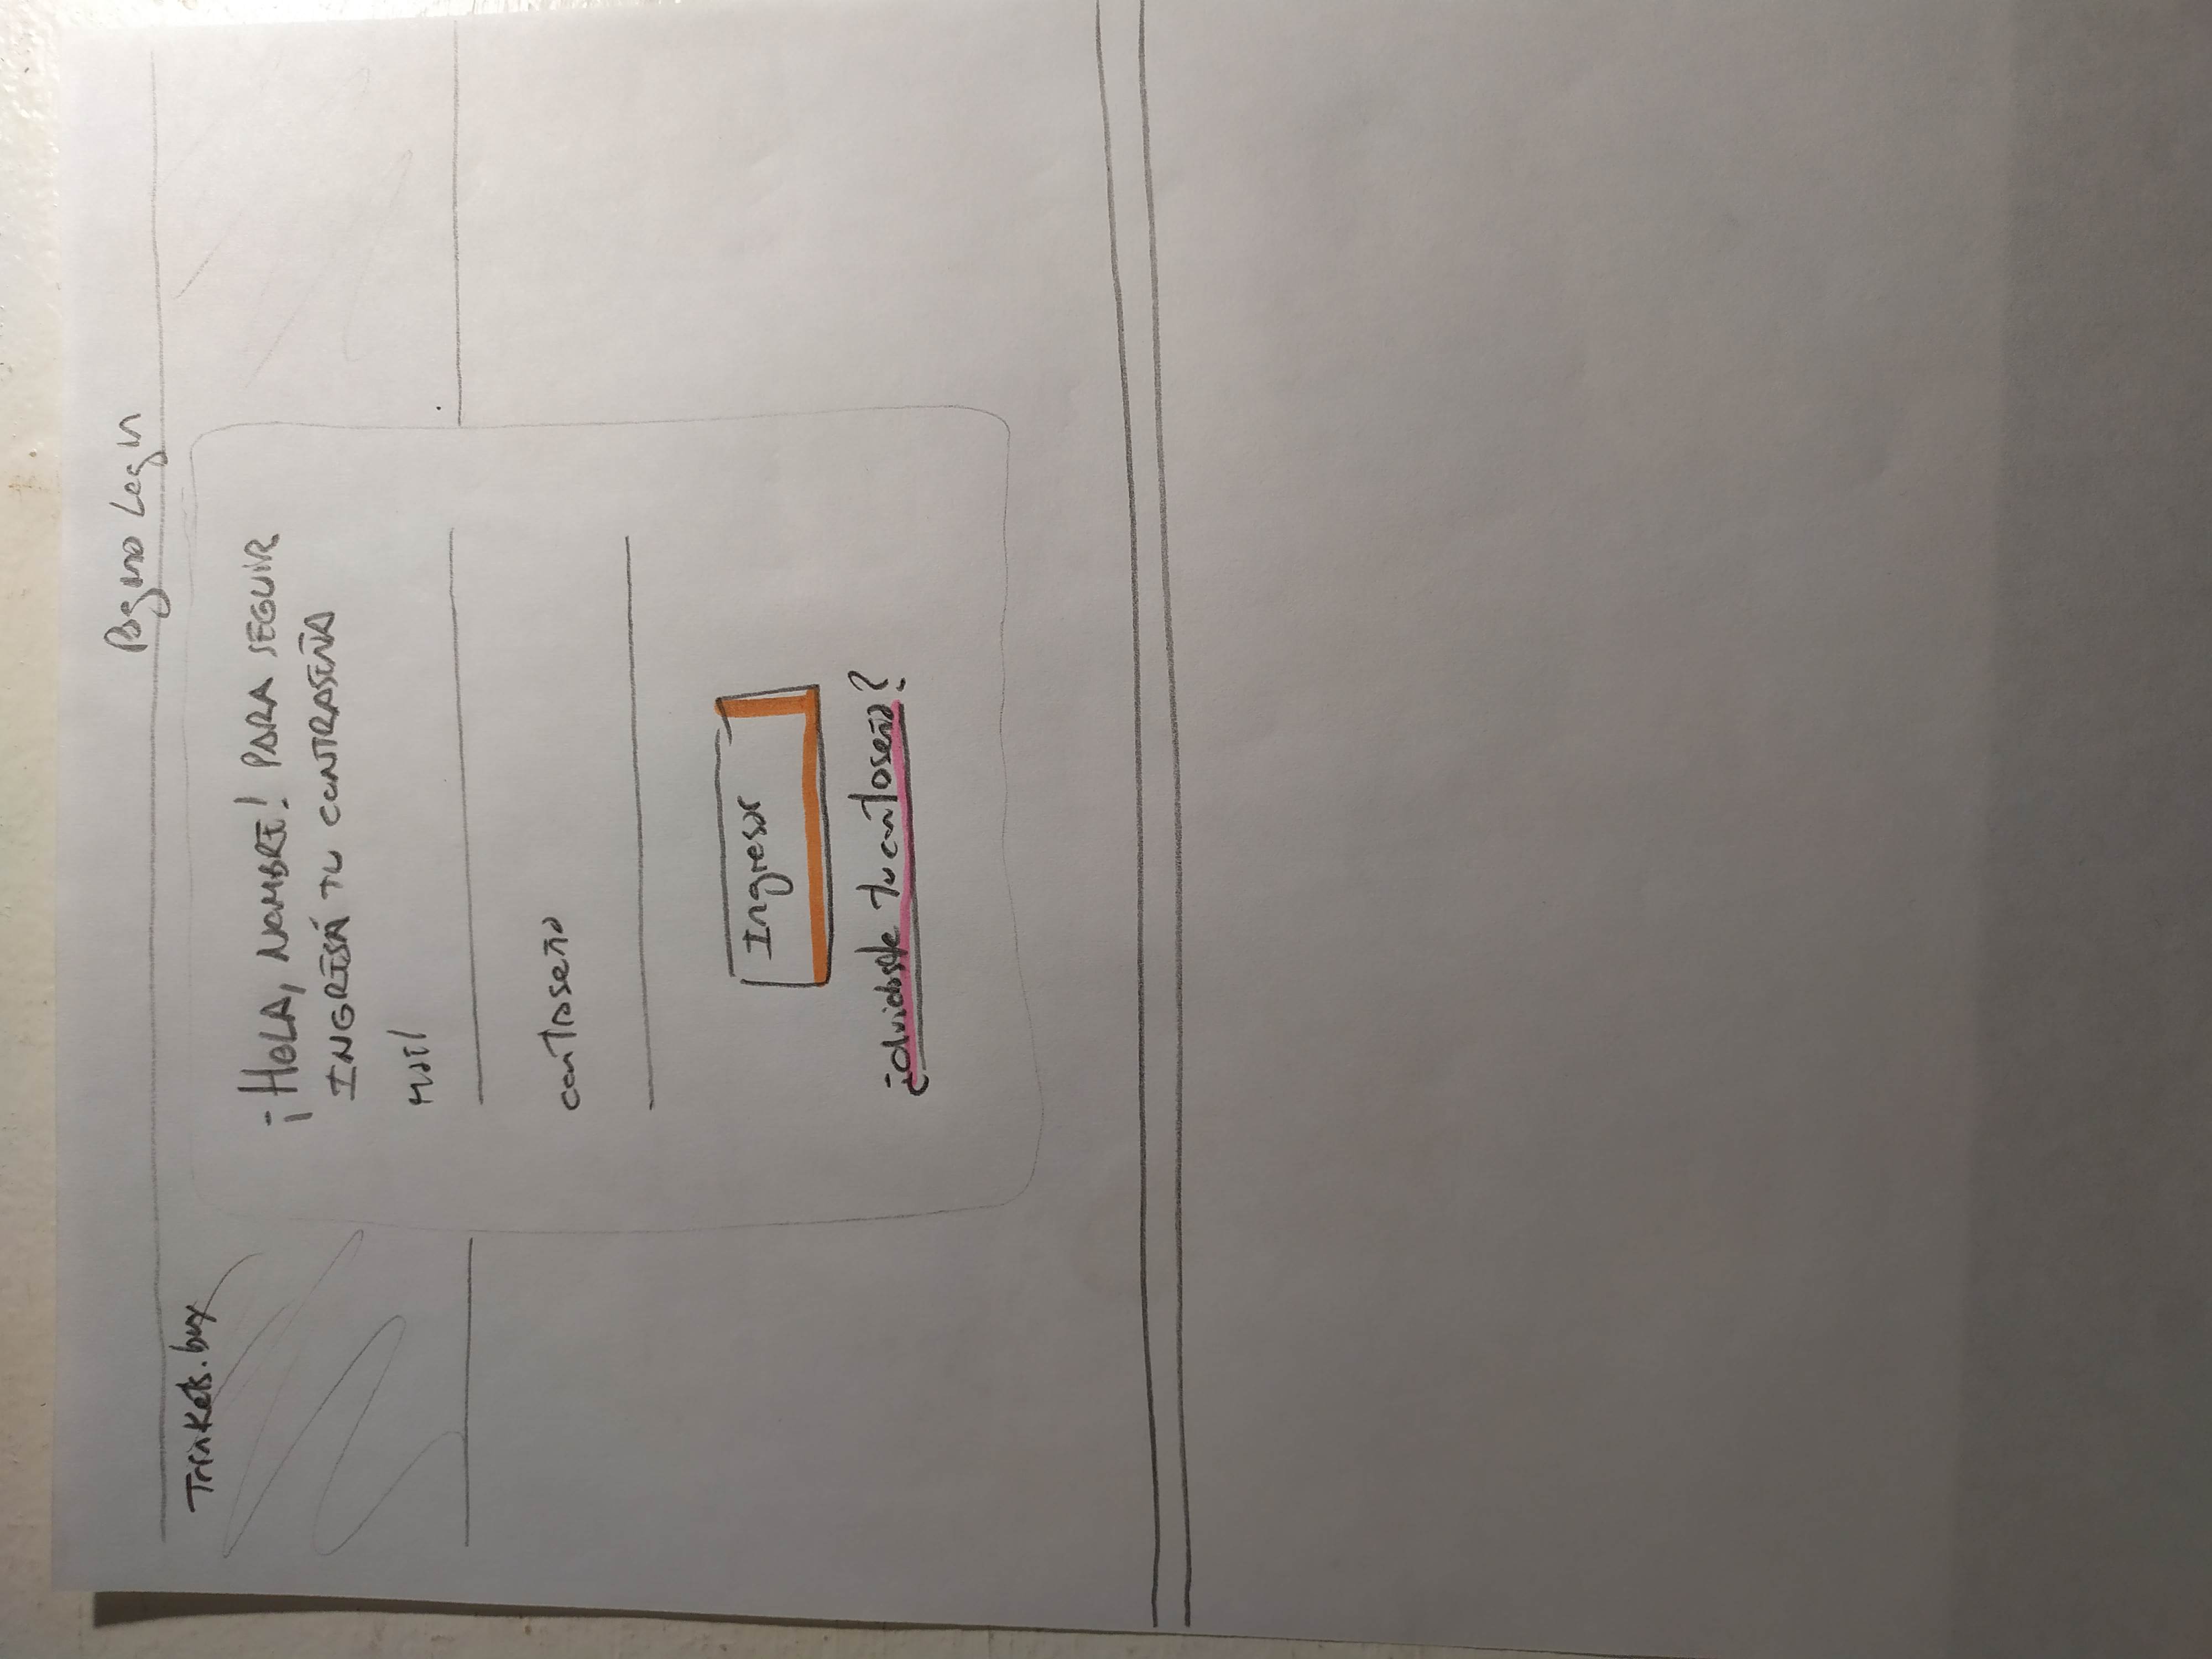 Pagina Login
Trinkets.box
¡HOLA, NOMBRE! PARA SEGUIR
INGRESÁ TU CONTRASEÑA
Mail
contraseña
Ingresar
¿olvidaste tu contraseña?